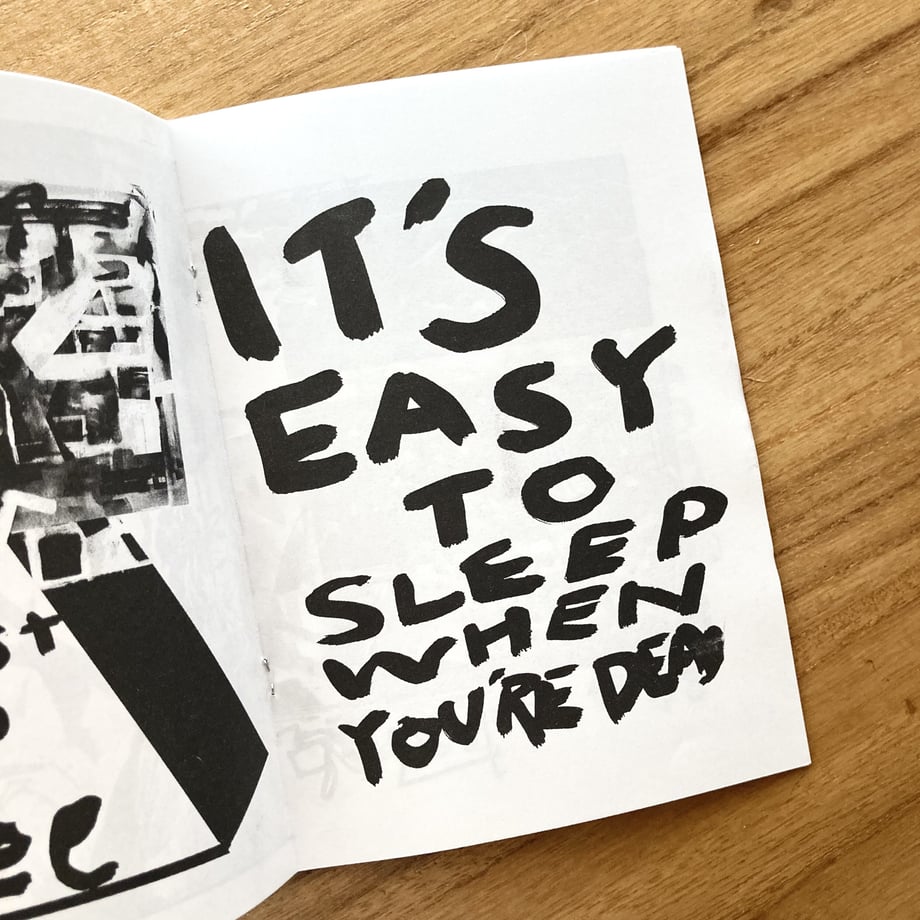 IT'S
EASY
TO
SLEEP
WHEN
YOU'RE DEAD